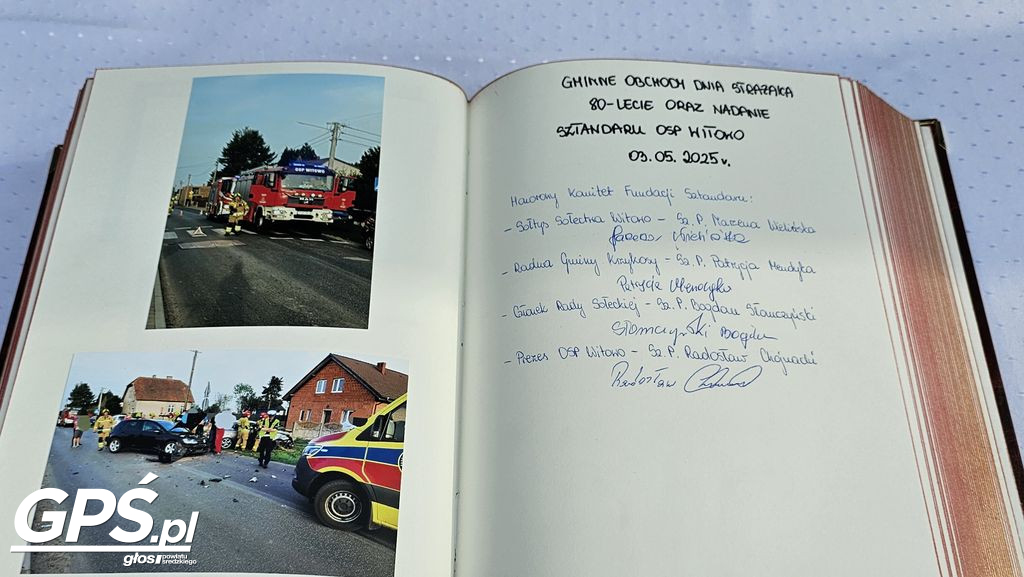 OSP WITOWO
MAN
GMINNE OBCHODY DNIA STRAŻAKA
80-LECIE ORAZ NADANIE
SZTANDARU OSP WITOWO
03.05.2025r.
Honorowy Komitet Fundacji Sztandaru:
- Sołtys Sołectwa Witowo - Sz. P. Marzena Wielińska
- Radna Gminy Krzykosy - Sz. P. Patrycja Mendyka
Patrycja Mendyka
- Członek Rady Sołeckiej - Sz. P. Bogdan Słomczyński
Słomczyński Bogdan
- Prezes OSP Witowo - Sz. P. Radosław Chojnacki
Radosław
GPŚ.pl
głos powiatu
średzkiego